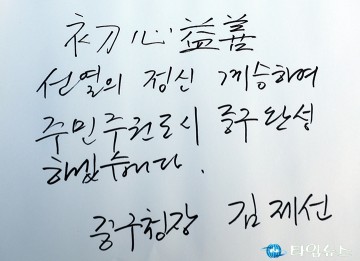 初心益善
선열의 정신 계승하여
주민주권도시 중구 완성
하겠습니다.
중구청장 김제선
타임뉴스